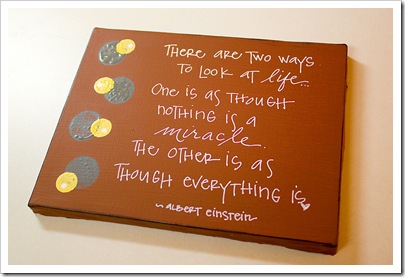 THERE ARE TWO WAYS
TO LOOK AT life...
ONE IS AS THOUGH
NOTHING IS A
miracle.
THE OTHER IS AS
THOUGH EVERYTHING IS.
~ALBERT EINSTEIN~